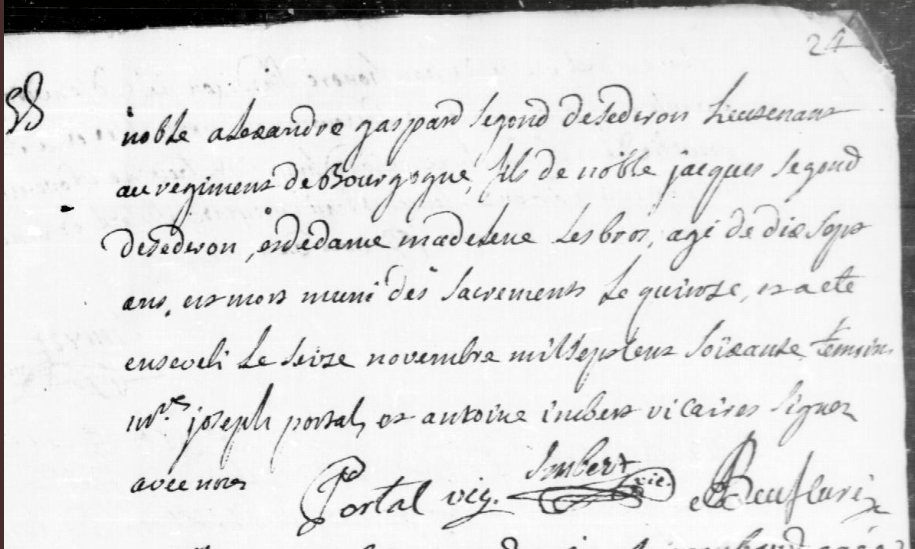 24
noble alexandre gaspard segond desederon lieutenant
au regiment de Bourgogne, fils de noble jacques segond
desederon, et de dame madelene Lesbros, agé de dix sept
ans, est mort muni des sacrements le quinze, et a eté
enseveli le seize novembre mil sept cens soixante, temoins
mr.es joseph portal, et antoine imbert vicaires signez
avec nous
Portal vic. Imbert vic.